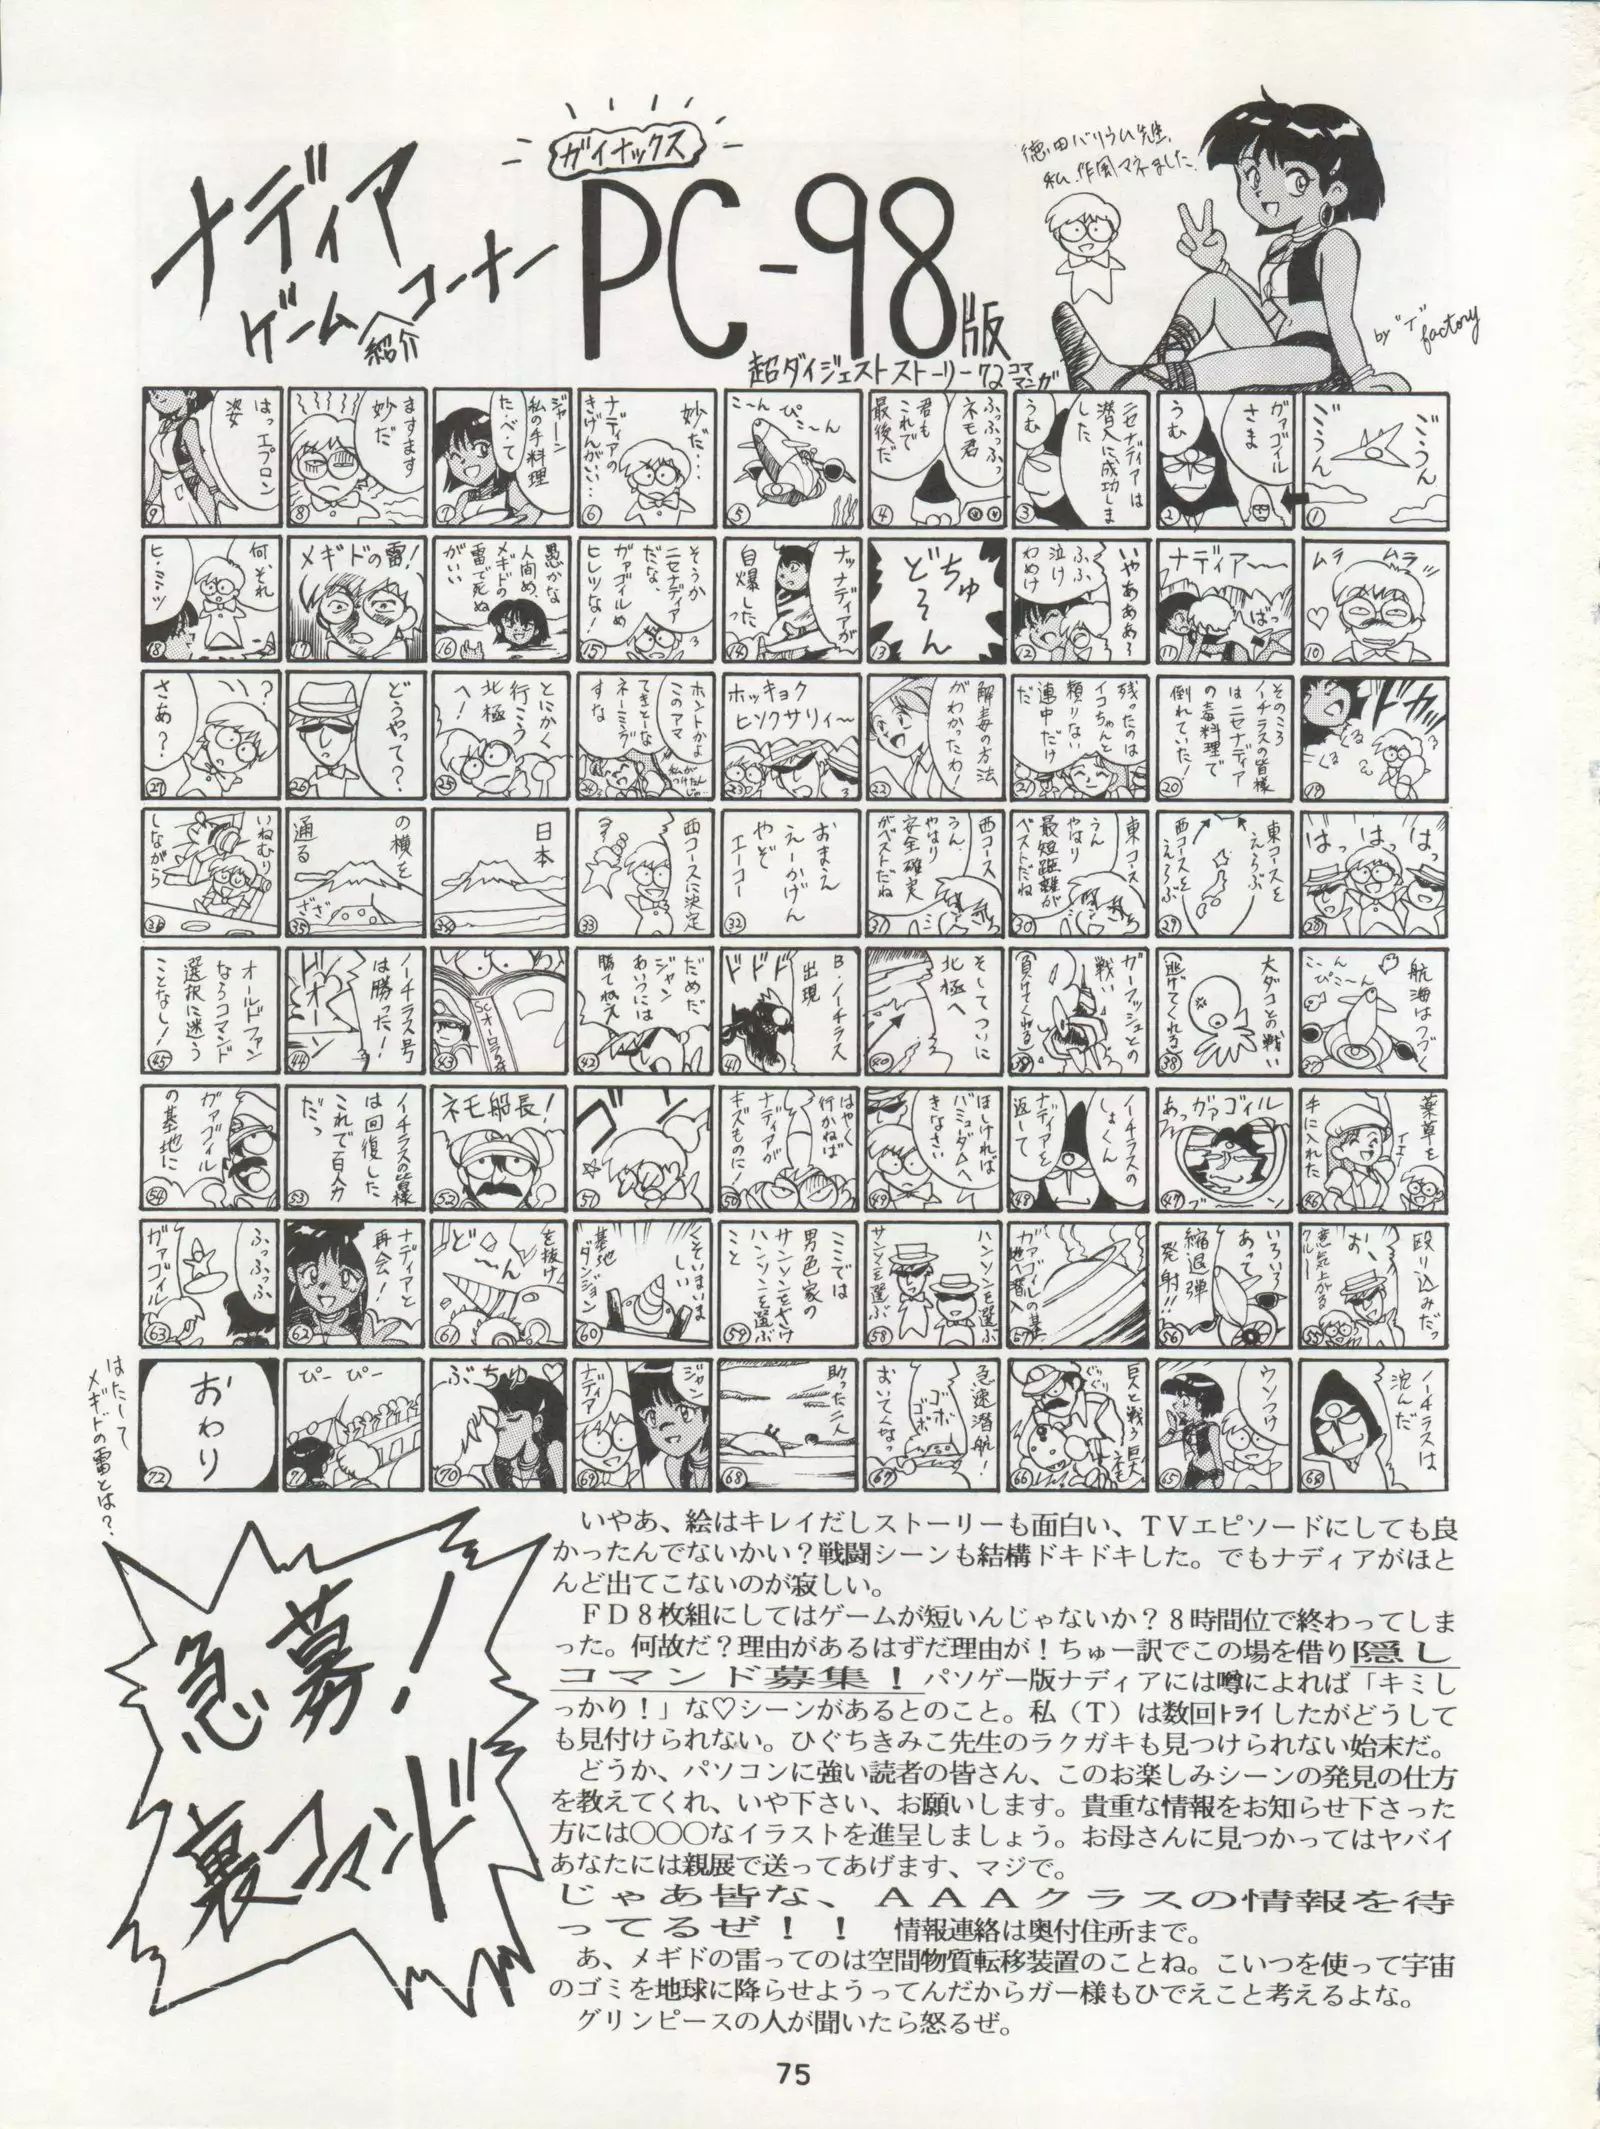 ナディア
ゲーム紹介コーナー
ガイナックス
PC-98版
超ダイジェストストーリー72コママンガ
徳田バリウム先生、
私、作風マネました。
by "T" factory
ゴうん
ゴうん
1
ガァゴイル
さま
うむ
2
ニセナディアは
潜入に成功しま
した
うむ
3
ふっふっふっ
ネモ君
君も
これで
最後だ
4
ぴこーん
こーん
5
妙だ…
ナディアの
きげんがいい…
6
ジャーン
私の手料理
た・べ・て
7
ますます
妙だ
8
はっエプロン
姿
9
ムラ ムラ
10
ナディア〜〜
ばっ
11
いやああああ
ふふ、
泣け
わめけ
12
ちゅ
どーん
13
ナッナディアが
自爆したっ
14
そうか
ニセナディア
だな、
ガァゴイルめ
ヒレツな!
15
愚かな
人間め、
メギドの
雷で死ぬ
がいい
16
メギドの雷!
17
何、それ
ヒ・ミ・ツ
18
ドカッ
19
そのころ
ノーチラスの皆様
はニセナディア
の毒料理で
倒れていた!
20
残ったのは
イコちゃんと
頼りない
連中だけ
だ
21
解毒の方法
がわかったわ!
22
ホッキョク
ヒソクサリィ〜
23
ホントかよ
このアマ
てきとーな
ネーミング
すな
24
とにかく
行こう
北極
へ!
25
どうやって?
26
さあ?
27
はっ はっ はっ
28
東コースを
えらぶ
西コースを
えらぶ
29
東コース
うん
やはり
最短距離が
ベストだね
30
西コース
うん、
やはり
安全確実
がベストだね
31
おまえ
えーかげん
やぞ
エーコー
32
西コースに決定
33
日本
34
の横を
通る
ざざ
35
いねむり
しながら
36
航海はつづく
こーん
ぴこーん
37
大ダコとの戦い
(逃げてくれる)
38
ガーフィッシュとの
戦い
(負けてくれる)
39
そしてついに
北極へ
40
B・ノーチラス
出現
ドドド
41
だめだ
ジャン
あいつには
勝てねえ
42
43
ノーチラス号
は勝った!
ドオーン
44
オールドファン
ならコマンド
選択に迷う
ことなし!
45
薬草を
手に入れた
46
あっガァゴイル
ブーン
47
ノーチラスの
しょくん
ナディアを
返して
48
ほしければ
バミューダへ
きなさい
49
はやく
行かねば
ナディアが
キズものに!
50
51
ネモ船長!
52
ノーチラスの皆様
は回復した
これで百人力
だっ
53
ガァゴイル
の基地に
54
殴り込みだっ
お、
意気上がる
クルー
55
いろいろ
あって
縮退弾
発射!!
56
ガァゴイルの基
地へ潜入
57
ハンソンを選ぶ
サンソンを選ぶ
58
ここでは
男色家の
サンソンをさけ
ハンソンを選ぶ
こと
59
くそいまいま
しい
基地
ダンジョン
60
を抜け
どーん
61
ナディアと
再会!
62
ふっふっふ
ガァゴイル
63
ノーチラスは
沈んだ
64
ウンつけ
65
巨人と戦う巨大
ネモ
66
急速潜航!
ゴボ
ゴボ
おいてくなっ
67
助った二人
68
ジャン
ナディア
69
ぶちゅ♡
70
ぴー ぴー
71
おわり
72
はたして
メギドの雷とは?
急募!
裏コマンド
いやあ、絵はキレイだしストーリーも面白い、TVエピソードにしても良
かったんでないかい?戦闘シーンも結構ドキドキした。でもナディアがほと
んど出てこないのが寂しい。
FD8枚組にしてはゲームが短いんじゃないか?8時間位で終わってしま
った。何故だ?理由があるはずだ理由が!ちゅー訳でこの場を借り隠し
コマンド募集!パソゲー版ナディアには噂によれば「キミし
っかり!」な♡シーンがあるとのこと。私(T)は数回トライしたがどうして
も見付けられない。ひぐちきみこ先生のラクガキも見つけられない始末だ。
どうか、パソコンに強い読者の皆さん、このお楽しみシーンの発見の仕方
を教えてくれ、いや下さい、お願いします。貴重な情報をお知らせ下さった
方には○○○なイラストを進呈しましょう。お母さんに見つかってはヤバイ
あなたには親展で送ってあげます、マジで。
じゃあ皆な、AAAクラスの情報を待
ってるぜ!! 情報連絡は奥付住所まで。
あ、メギドの雷ってのは空間物質転移装置のことね。こいつを使って宇宙
のゴミを地球に降らせようってんだからガー様もひでえこと考えるよな。
グリンピースの人が聞いたら怒るぜ。
75